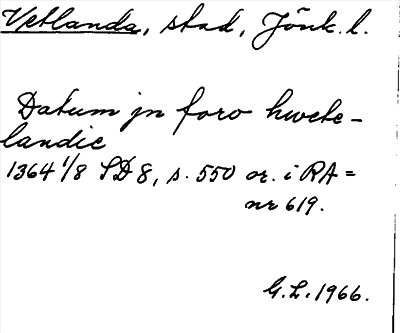 Vetlanda, stad, Jönk. l.
Datum jn foro hwete-
landic
1364 1/8 SD 8, s. 550 or. i RA =
nr 619.
G.L. 1966.